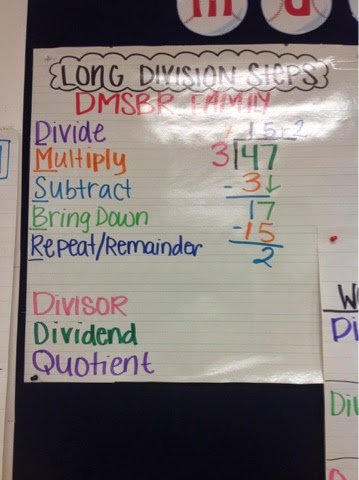 LONG DIVISION STEPS
DMSBR FAMILY
Divide
Multiply
Subtract
Bring Down
Repeat/Remainder
15 r2
3|47
-3↓
17
-15
2
Divisor
Dividend
Quotient
W
Di
Div